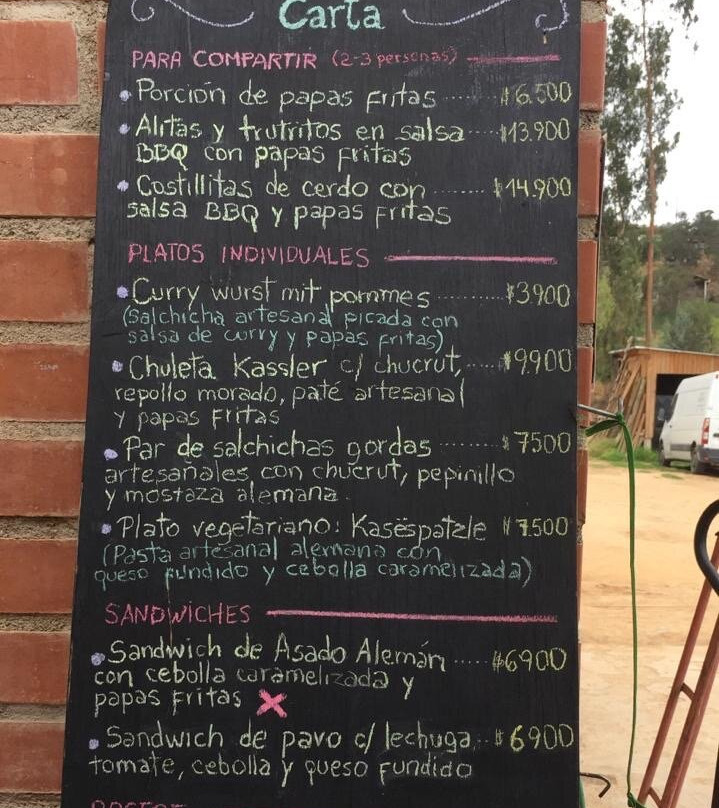 Carta
PARA COMPARTIR (2-3 personas)
• Porción de papas fritas ...... $6.500
• Alitas y trutritos en salsa ... $13.900
BBQ con papas fritas
• Costillitas de cerdo con ....... $14.900
salsa BBQ y papas fritas
PLATOS INDIVIDUALES
• Curry wurst mit pommes .......... $3900
(Salchicha artesanal picada con
salsa de curry y papas fritas)
• Chuleta Kassler c/ chucrut, ..... $9900
repollo morado, paté artesanal
y papas fritas
• Par de salchichas gordas ........ $7500
artesañales con chucrut, pepinillo
y mostaza alemana.
• Plato vegetariano: Kasëspatzle $7.500
(Pasta artesanal alemana con
queso fundido y cebolla caramelizada)
SANDWICHES
• Sandwich de Asado Alemán ..... $6900
con cebolla caramelizada y
papas fritas X
• Sandwich de pavo c/ lechuga, .. $6900
tomate, cebolla y queso fundido